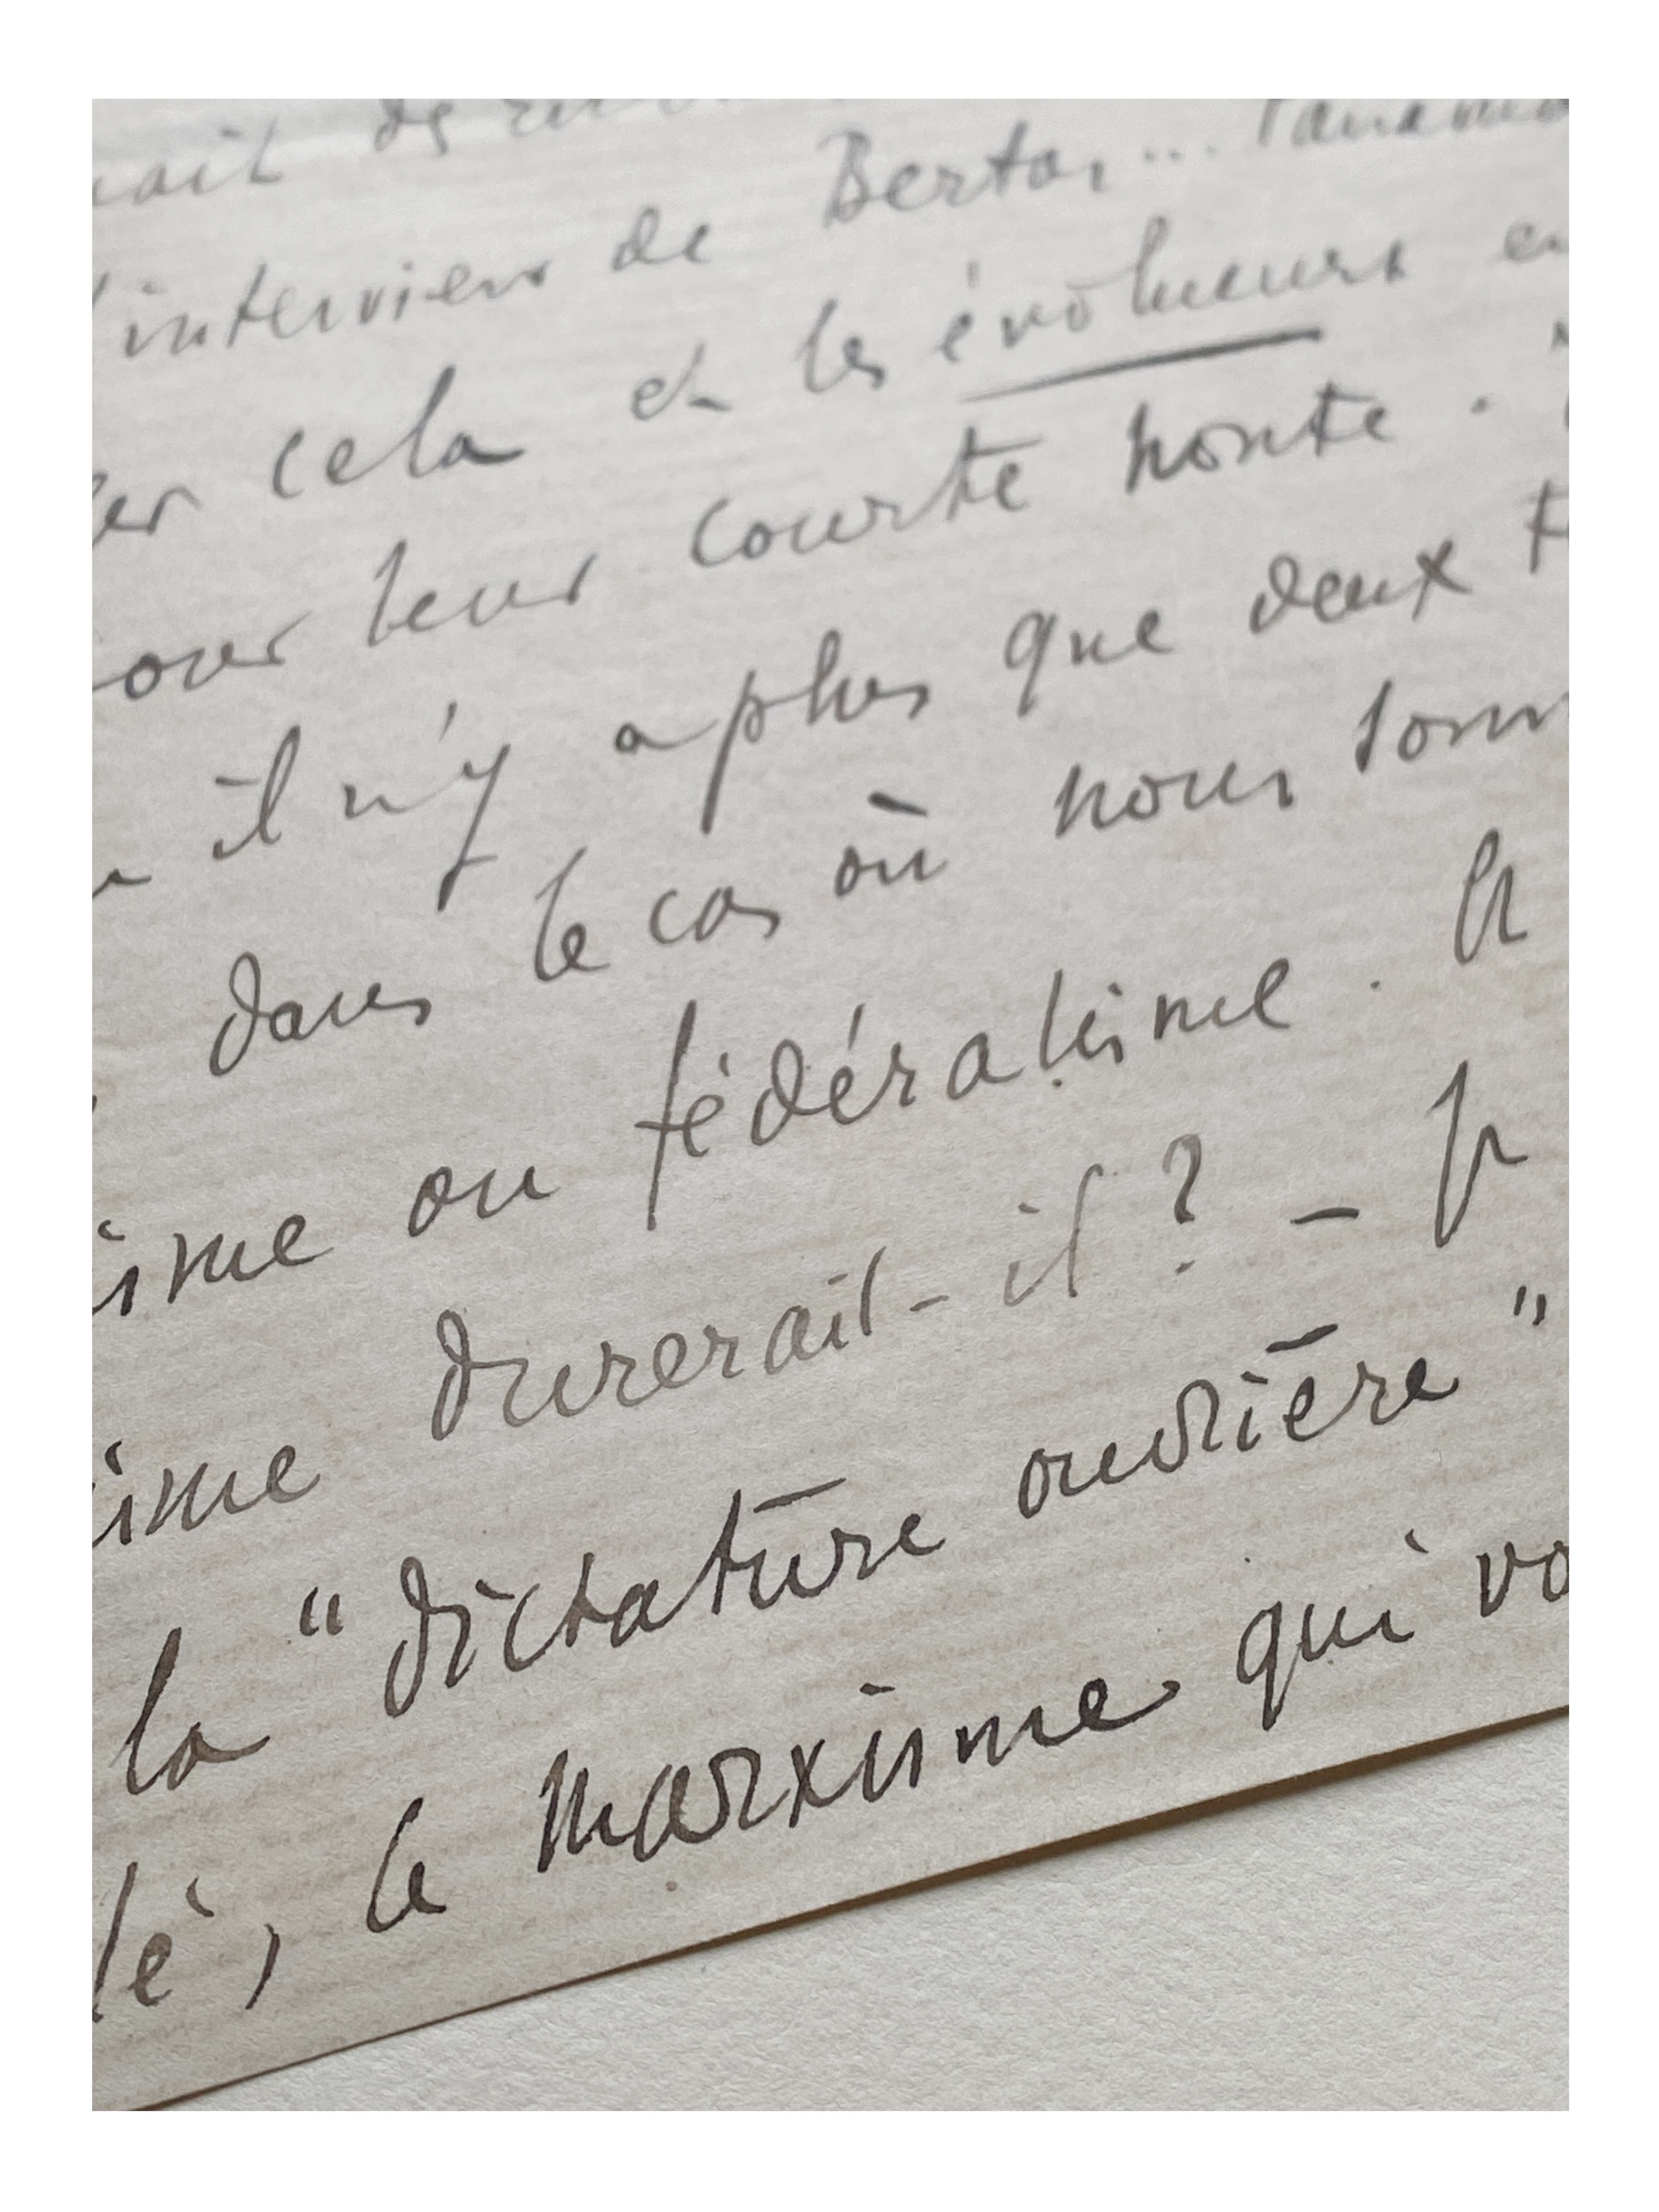 l'interview de Bertoi...
er cela et les évolueurs e
over leur courte honte.
il n'y a plus que deux t
dans le cas où nous somm
isme ou fédéralisme. Et
isme durerait-il? –
la "dictature ouvrière"
lé, le marxisme qui vo